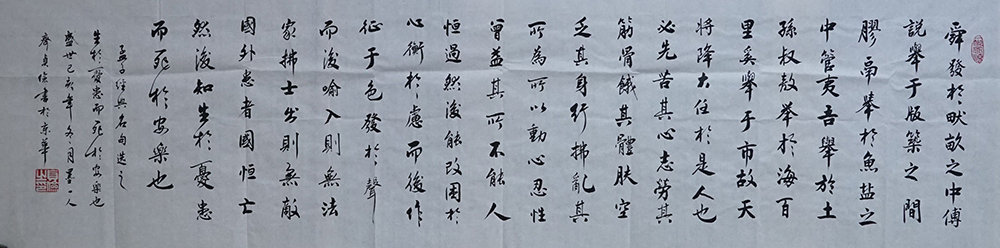 舜發於畎畝之中傅
說舉于版築之間
膠鬲舉於魚鹽之
中管夷吾舉於土
孫叔敖舉於海百
里奚舉于市故天
將降大任於是人也
必先苦其心志勞其
筋骨餓其體膚空
乏其身行拂亂其
所為所以動心忍性
曾益其所不能人
恒過然後能改困於
心衡於慮而後作
徵于色發於聲
而後喻入則無法
家拂士出則無敵
國外患者國恒亡
然後知生於憂患
而死於安樂也
孟子經典名句選之
生於憂患而死於安樂也
盛世己亥年冬月墨一人
齊 書於京華